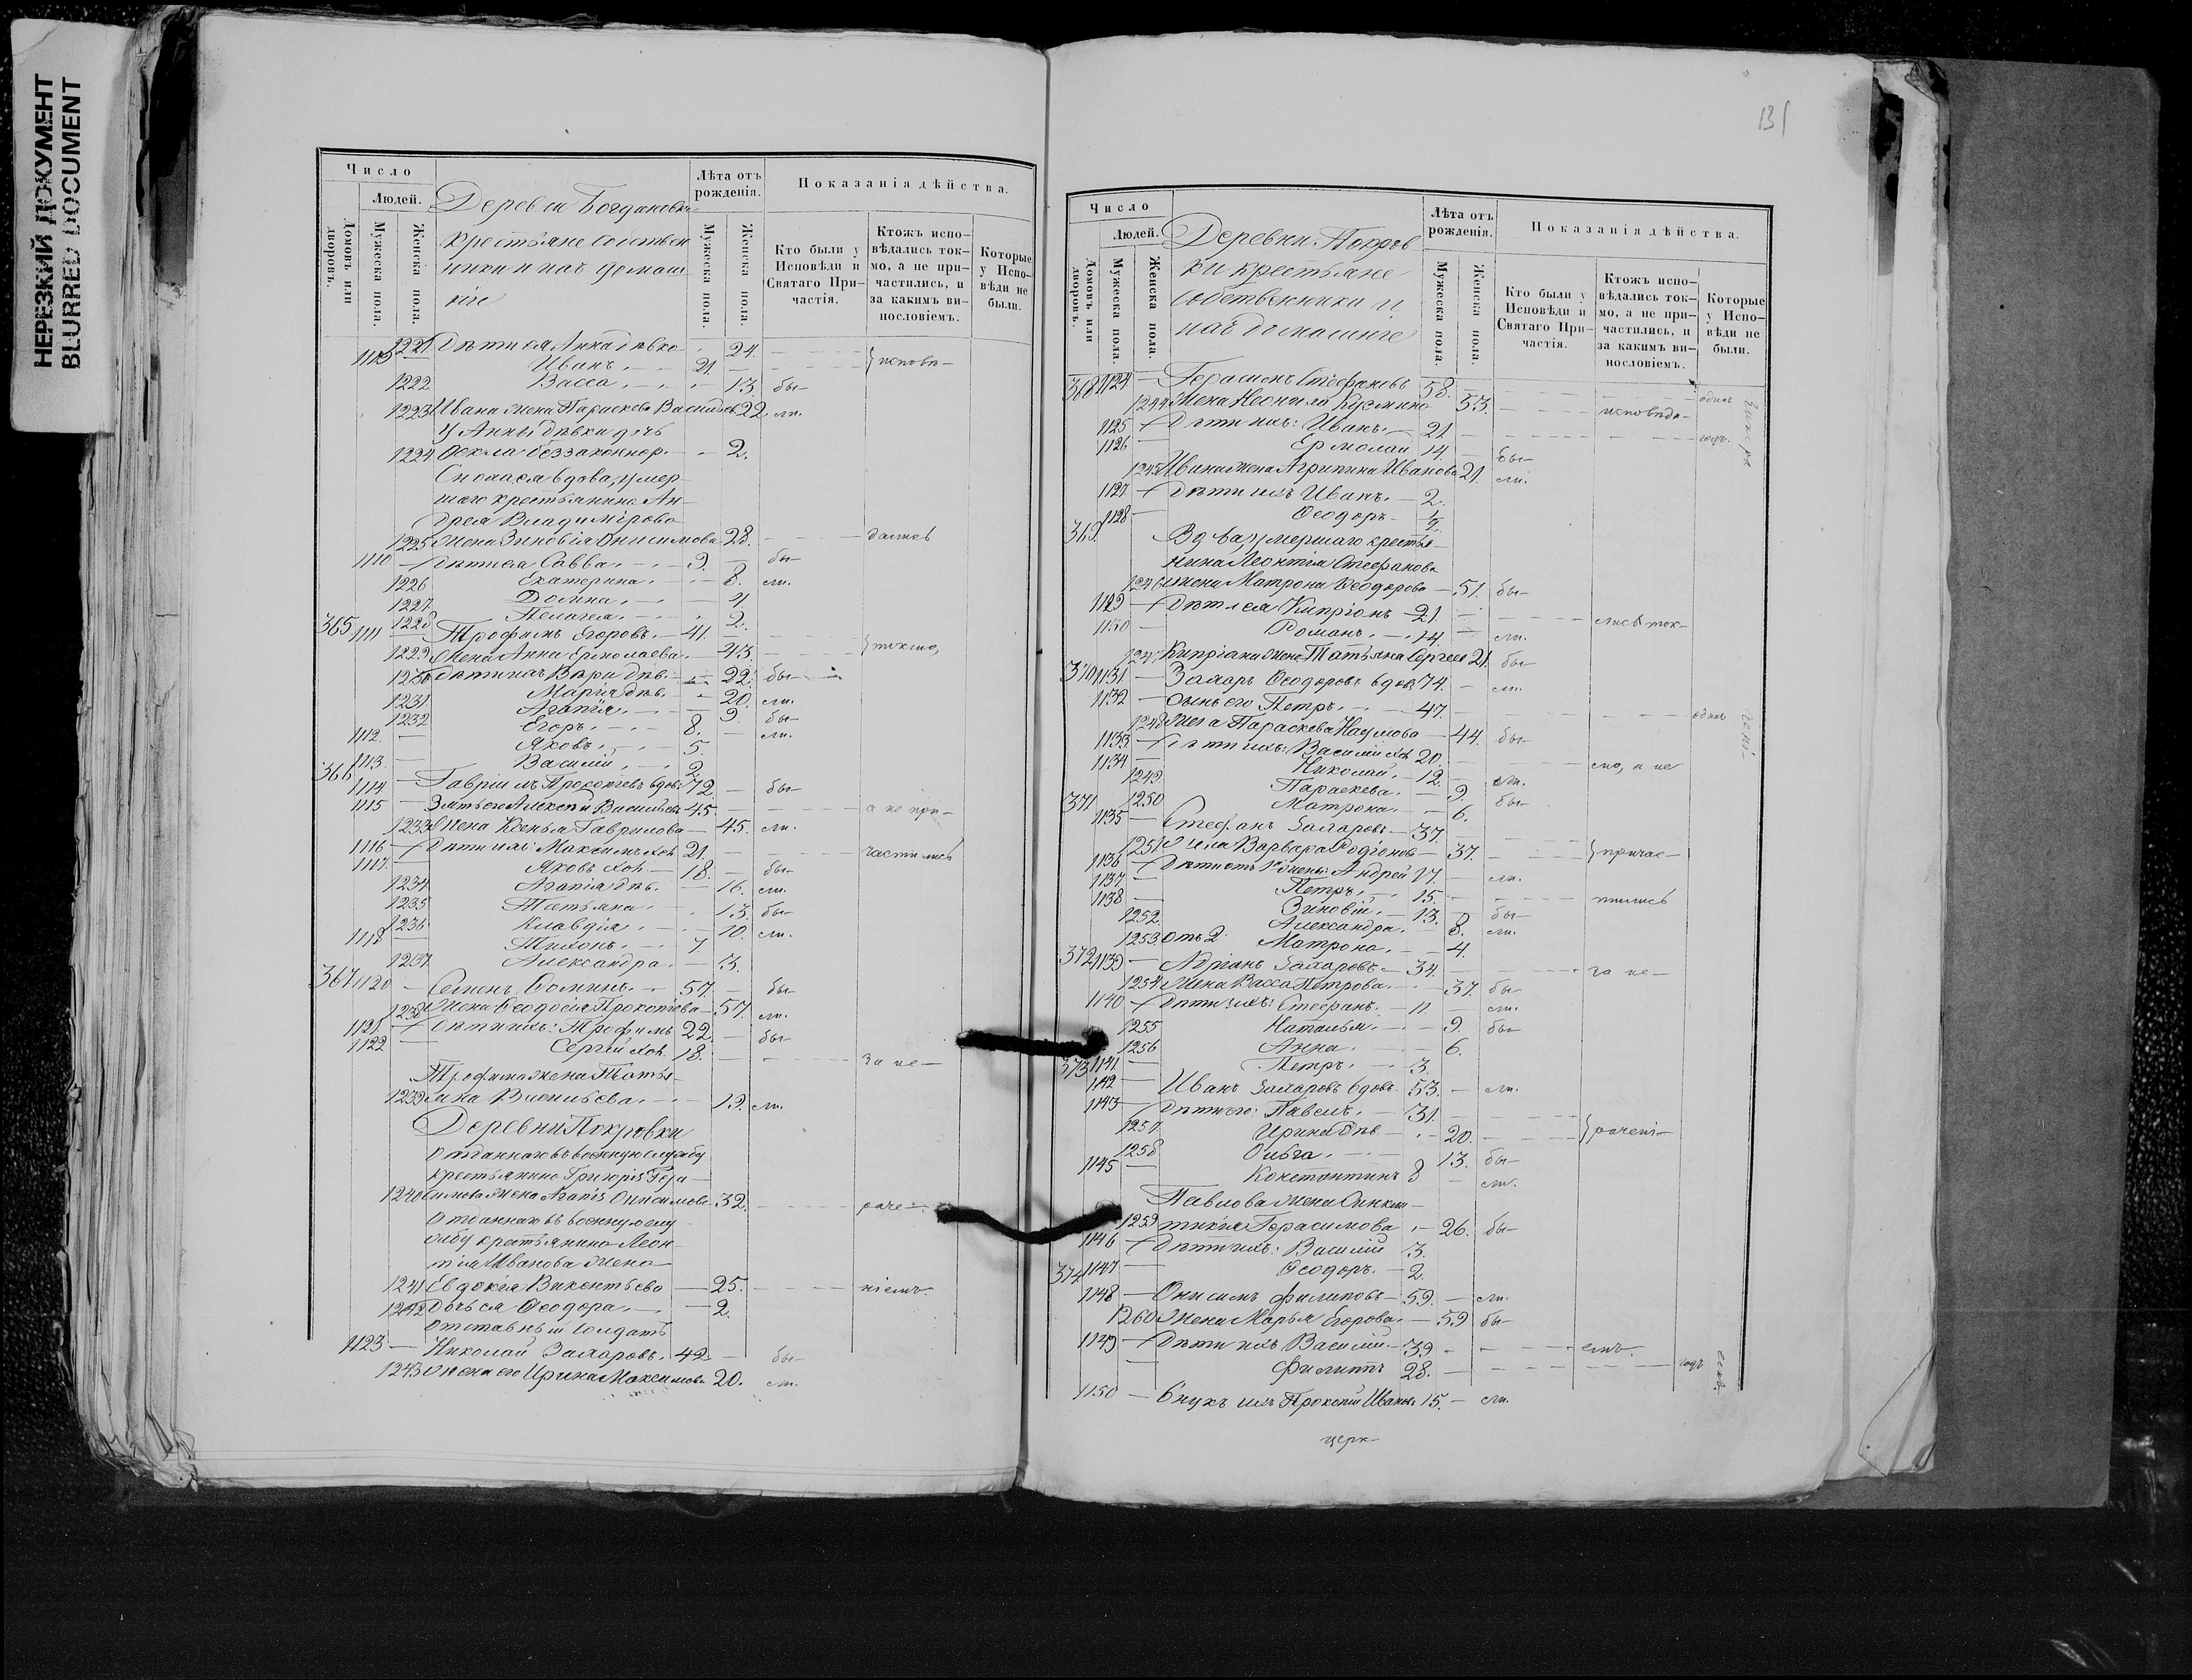 НЕРЕЗКИЙ ДОКУМЕНТ
BLURRED DOCUMENT
Число
Людей.
Домовъ или дворовъ.
Мужеска пола.
Женска пола.
Деревни Богдановки
крестьяне собствен
ники и ихъ домаш
ніе
Лѣта отъ рожденія.
Мужеска пола.
Женска пола.
Показанія дѣйства.
Кто были у Исповѣди и Святаго Причастія.
Ктожъ исповѣдались токмо, а не причастились, и за какимъ винословіемъ.
Которые у Исповѣди не были.
1221 Дѣти ея Анна дѣвка 24.
Иванъ 21 — исповѣ-
1222 Васса 13. бы-
1223 Ивана жена Параскева Васильев 22 ли.
У Анны дѣвки дочь
1224 Ѳекла беззаконнор. 2.
Сноха ея вдова, умер
шаго крестьянина Ан
дрея Владимірова
1225 жена Зиновія Онисимова 28. — дались
1110 — Дѣти ея Савва 9. — бы-
1226 Екатерина 8. ли.
1227 Домна 4
1228 Пелагея 2.
365 1111 — Трофимъ Егоровъ 41.
1229 Жена Анна Ермолаева 43. — токмо,
1230 Дѣти ихъ Вѣра дѣв. 22. бы-
1231 Марія дѣв. 20. ли.
1232 Агапія 9. бы-
1112. — Егоръ 8. — ли.
Яковъ 5.
1113 — Василій 2.
366 1114 — Гавріилъ Прокопіевъ вдов. 72 — бы-
1115 — Зять его Алексѣй Васильевъ 45. — а не при-
1233 Жена Ксенья Гаврилова 45. ли.
1116 — Дѣти ихъ: Максимъ хол. 21. — частились
1117. — Яковъ хол. 18. — бы-
1234 Агапія дѣв. 16. ли.
1235 Татьяна 13. бы-
1236 Клавдія 10. ли.
1118 — Тихонъ 7
1237 Александра 3.
367 1120 — Семенъ Ѳоминъ 57. — бы-
1238 Жена Ѳеодосія Прокопіева 57. ли.
1121. — Дѣти ихъ: Трофимъ 22. — бы-
1122 — Сергѣй хол. 18. — за не-
Трофима жена Татья-
1239 на Васильева 19. ли.
Деревни Покровки
Отданнаго въ военную службу
крестьянина Григорія Гера-
1240 симова жена Агапія Онисимова 32. — раче-
Отданнаго въ военную слу
жбу крестьянина Леон
тія Иванова жена
1241 Евдокія Викентьева 25. — ніемъ.
1242 Дочь ея Ѳеодора 2.
Отставный солдатъ
1123 — Николай Захаровъ 42 — бы-
1243 Жена его Ирина Максимова 20. ли.
131
Число
Людей.
Домовъ или дворовъ.
Мужеска пола.
Женска пола.
Деревни Покров
ки крестьяне
собственники и
ихъ домашніе
Лѣта отъ рожденія.
Мужеска пола.
Женска пола.
Показанія дѣйства.
Кто были у Исповѣди и Святаго Причастія.
Ктожъ исповѣдались токмо, а не причастились, и за какимъ винословіемъ.
Которые у Исповѣди не были.
368 1124 — Герасимъ Стефановъ 58. — одинъ
1244 Жена Неонила Кузмина 53. — исповѣда-
1125 — Дѣти ихъ: Иванъ 21 — годъ.
1126 — Ермолай 14 — бы-
1245 Ивана жена Агрипина Иванова 21. ли.
1127 — Дѣти ихъ Иванъ 2.
1128 — Ѳеодоръ 1/2
369. Вдова, умершаго крестья-
нина Леонтія Стефанова
1246 жена Матрона Ѳеодорова 51. бы-
1129 — Дѣти ея Кипріянъ 21. — лись ток-
1130 — Романъ 14 — ли.
1247 Кипріана жена Татьяна Сергеев 21. бы-
370 1131 — Захаръ Ѳеодоровъ вдов. 74. — ли.
1132 — Сынъ его Петръ 47. — одинъ
1248 Жена Параскева Наумова 44. бы-
1133. — Дѣти ихъ: Василій хол. 20.
1134 — Николай 12. — мо, а не
1249. Параскева 9. ли.
1250 Матрона 6. бы-
371 1135 — Стефанъ Захаровъ 37.
1251 Жена Варвара Родіонова 37. — причас-
1136 — Дѣти отъ 1й жены: Андрей 17. — ли.
1137. — Петръ 15. — тились
1138 — Зиновій 13. — бы-
1252. Александра 8. ли.
1253. Отъ 2. Матрона 4.
372 1139 — Адріанъ Захаровъ 34. — за не-
1254 Жена Васса Петрова 37. бы-
1140 — Дѣти ихъ: Стефанъ 11. — ли.
1255 Наталья 9. бы-
1256 Анна 6.
373 1141. — Петръ 3.
1142 — Иванъ Захаровъ вдовъ 53. — ли.
1143 — Дѣти его: Павелъ 31.
1257. Ирина дѣв 20. — рачені-
1258 Ольга 13. бы-
1145 — Константинъ 8 — ли.
Павлова жена Синкли-
1259 тикія Герасимова 26. бы-
1146 — Дѣти ихъ: Василій 3.
374 1147 — Ѳеодоръ 2.
1148 — Онисимъ Филиповъ 59. — ли.
1260 Жена Марья Егорова 59 бы-
1149 — Дѣти ихъ Василій 39. — емъ.
— Филиппъ 28. — годъ
1150 — Внукъ ихъ Прокопій Иванов. 15. — ли.
церк-